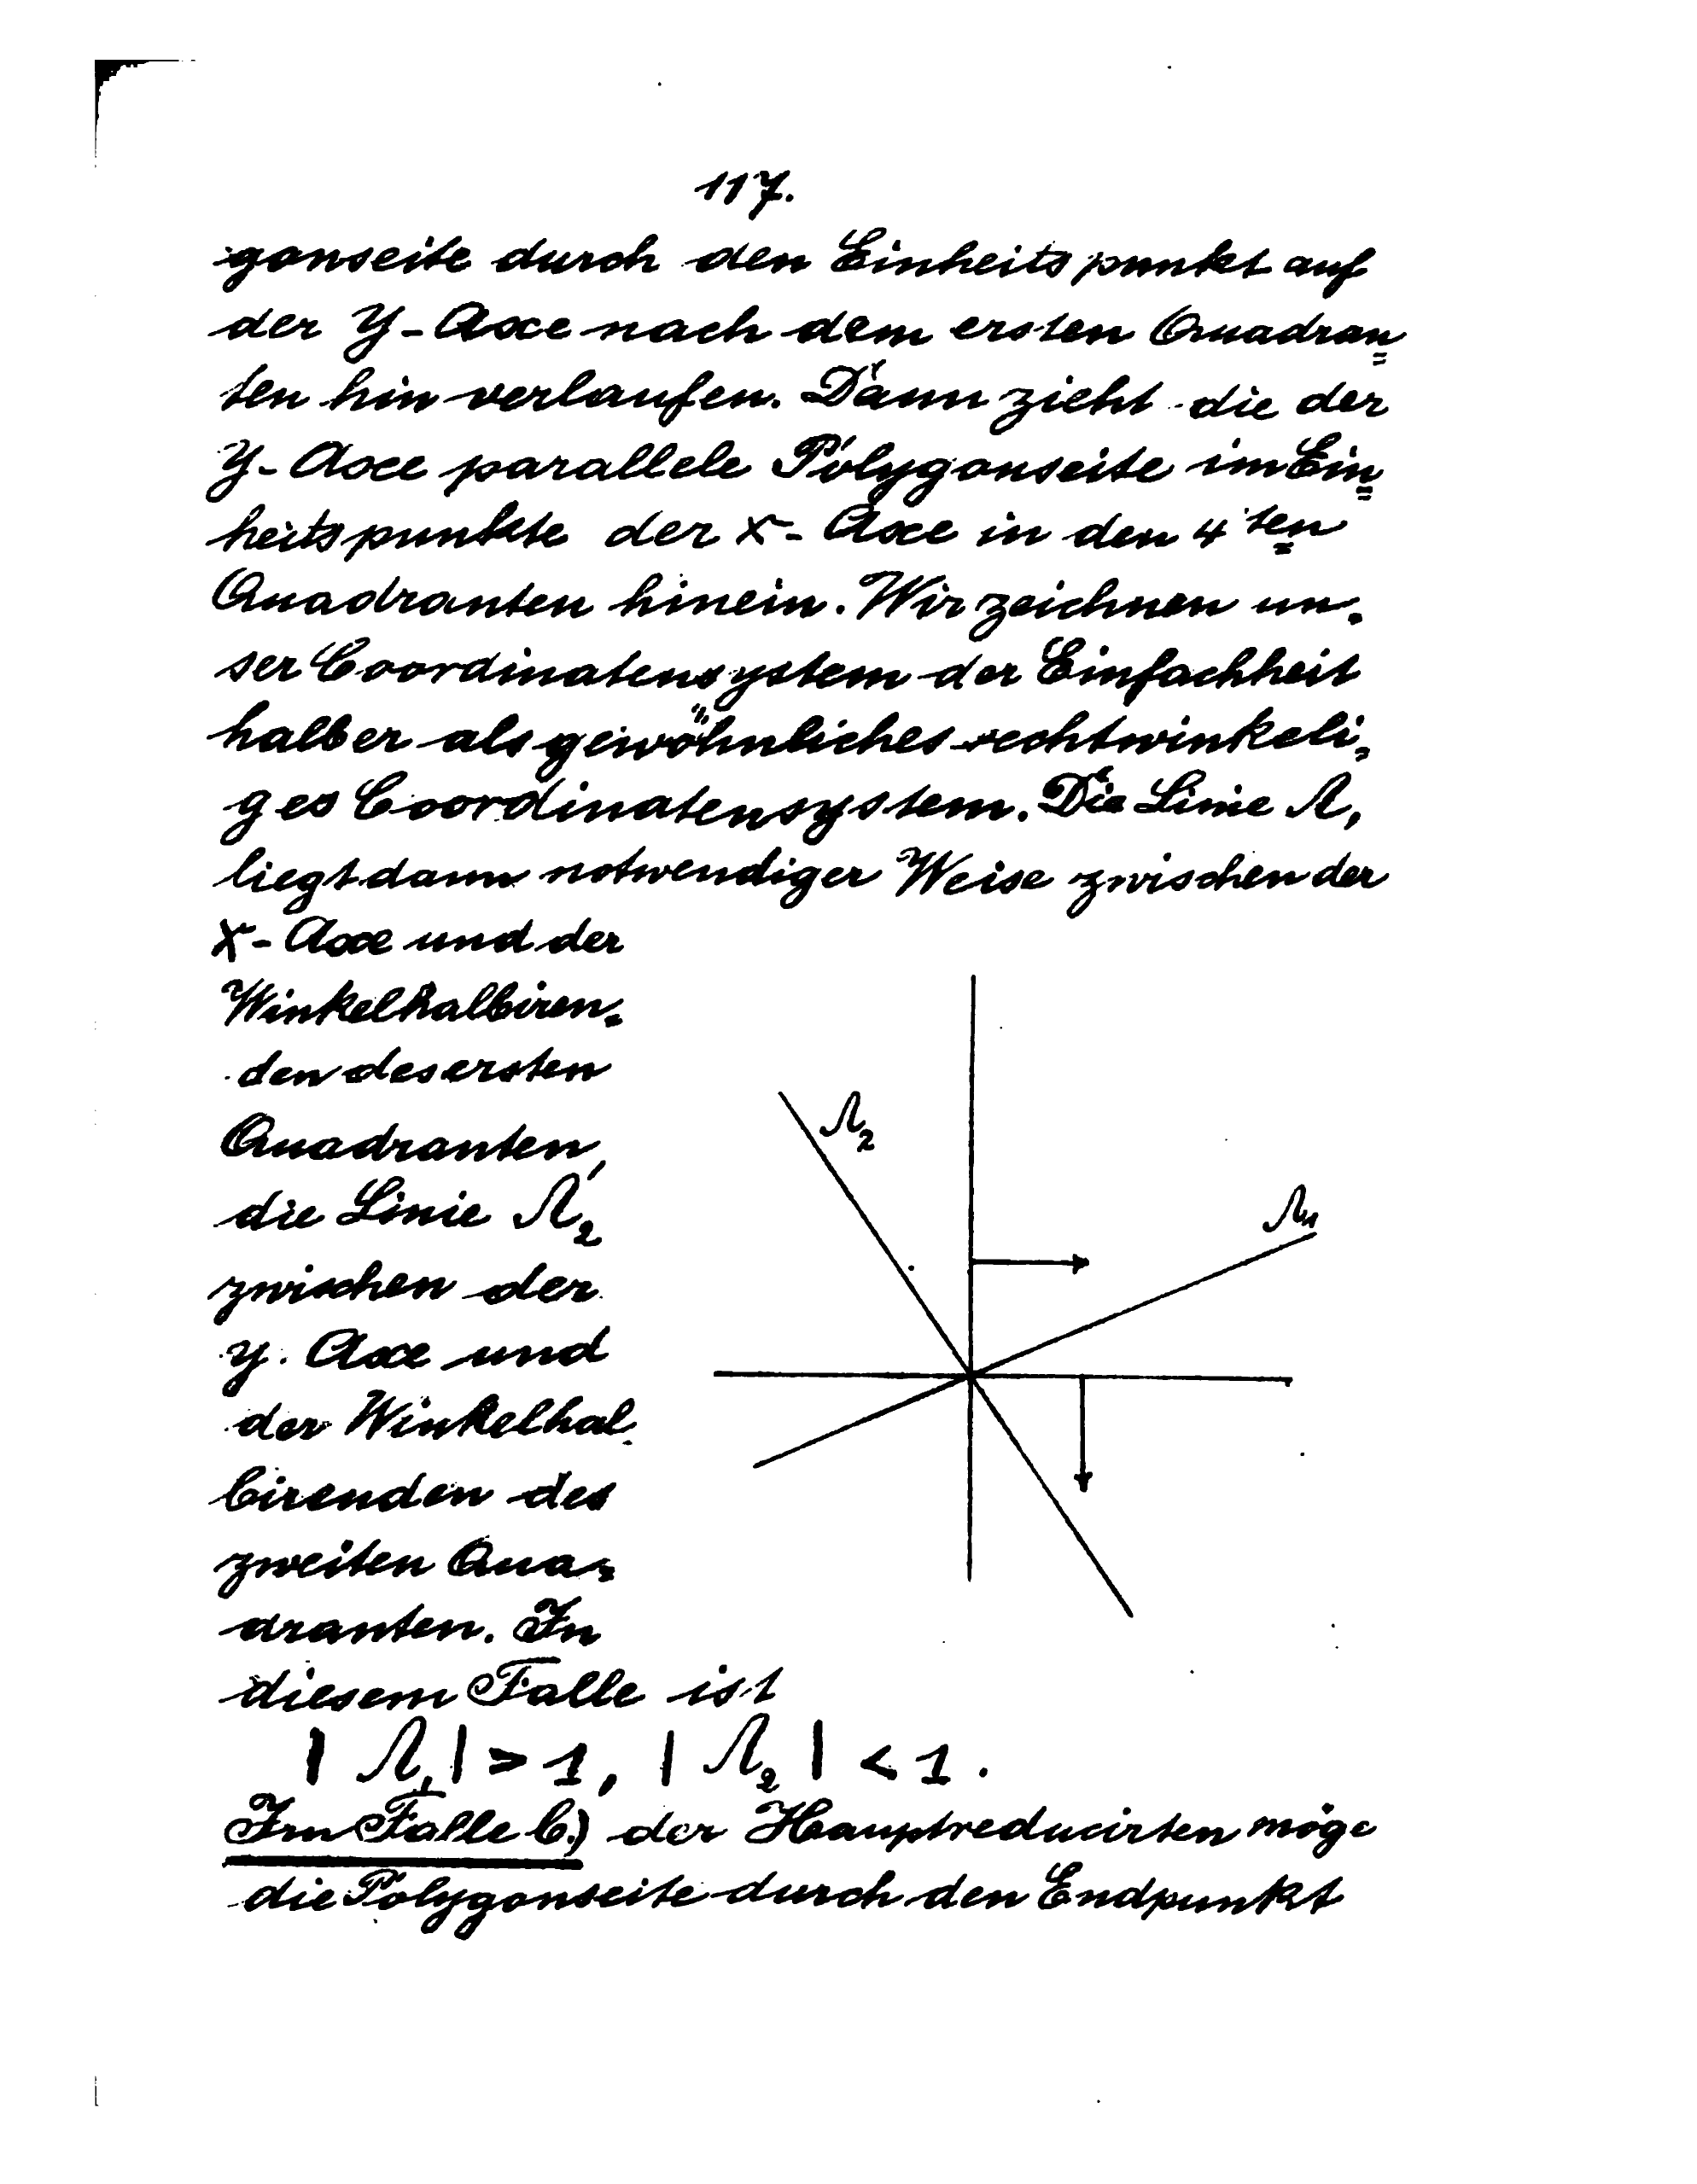 117.
gonseite durch den Einheitspunkt auf
der Y-Axe nach dem ersten Quadran=
ten hin verlaufen. Dann zieht die der
Y-Axe parallele Polygonseite im Ein=
heitspunkte der X-Axe in den 4ten
Quadranten hinein. Wir zeichnen un=
ser Coordinatensystem der Einfachheit
halber als gewöhnliches rechtwinkeli=
ges Coordinatensystem. Die Linie Λ₁
liegt dann notwendiger Weise zwischen der
X-Axe und der
Winkelhalbiren=
den des ersten
Quadranten,
die Linie Λ₂
zwischen der
y. Axe und
der Winkelhal
birenden des
zweiten Qua=
dranten. In
diesem Falle ist
|Λ₁| > 1, |Λ₂| < 1.
Im Falle b.) der Hauptreducirten möge
die Polygonseite durch den Endpunkt
Λ₂
Λ₁